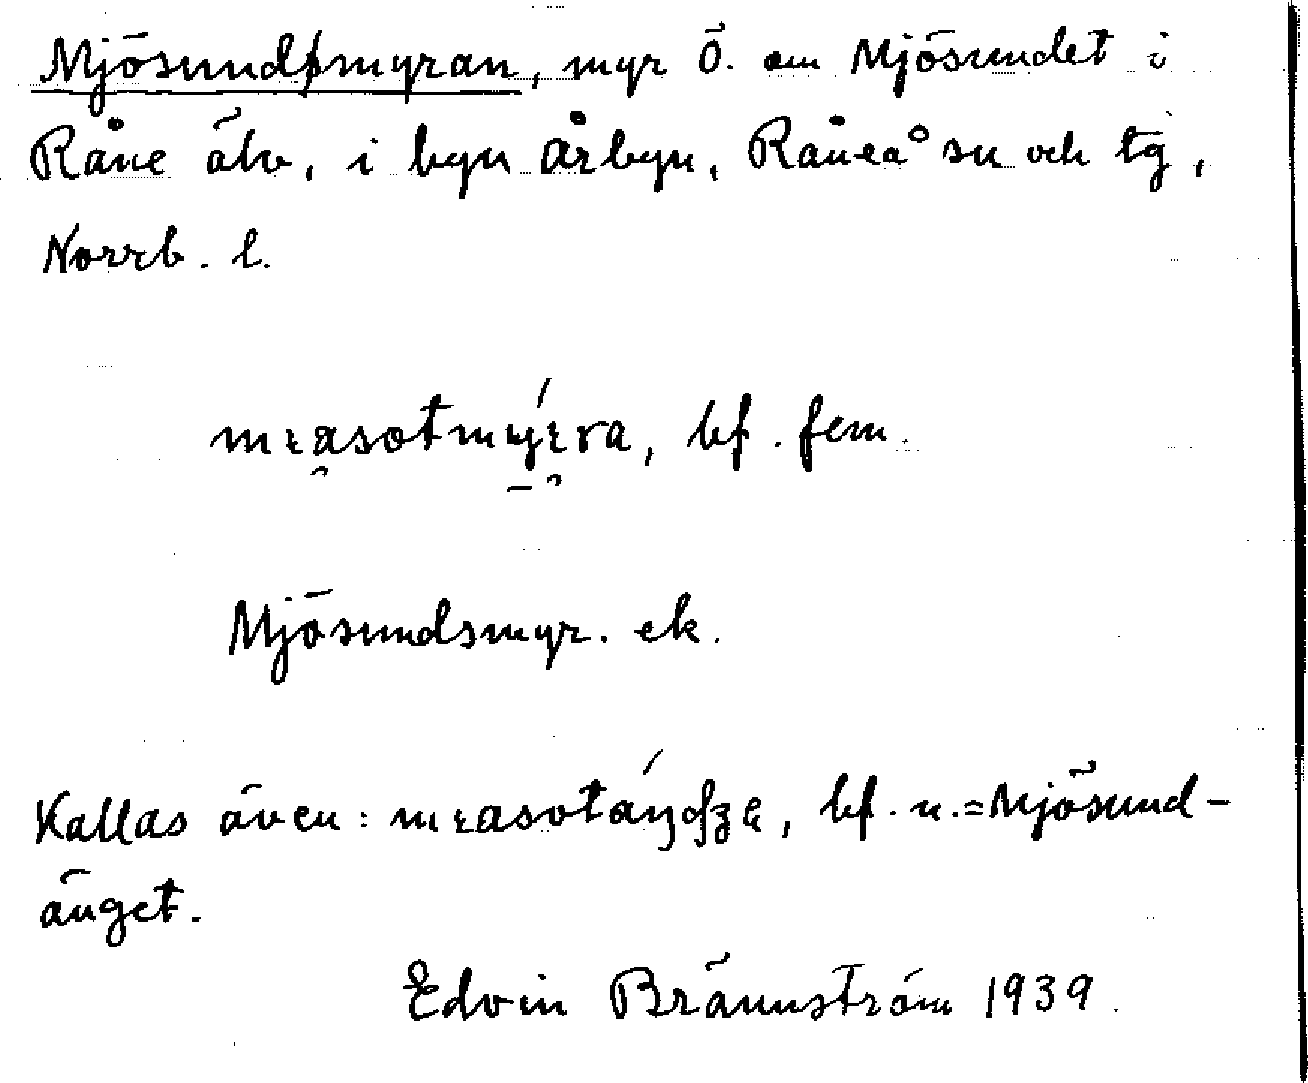 Mjösundsmyran, myr Ö. om Mjösundet i
Råne älv, i byn Årbyn, Råneå sn och tg,
Norrb. l.
bf. fem.
Mjösundsmyr. ek.
Kallas även: bf. n. = Mjösund-
änget.
Edvin Brännström 1939.